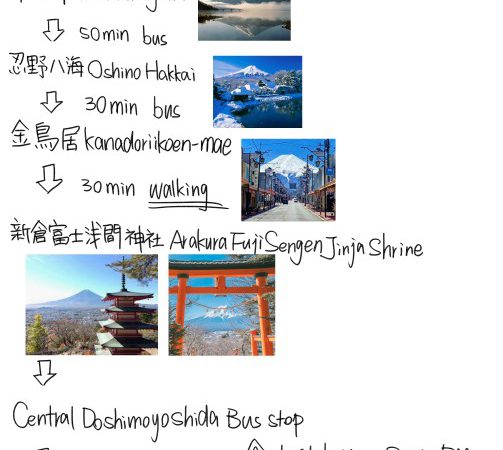 50min bus
忍野八海 Oshino Hakkai
30min bus
金鳥居 kanadoriikoen-mae
30min walking
新倉富士浅間神社 Arakura Fuji Sengen Jinja Shrine
Central Doshimoyoshida Bus stop